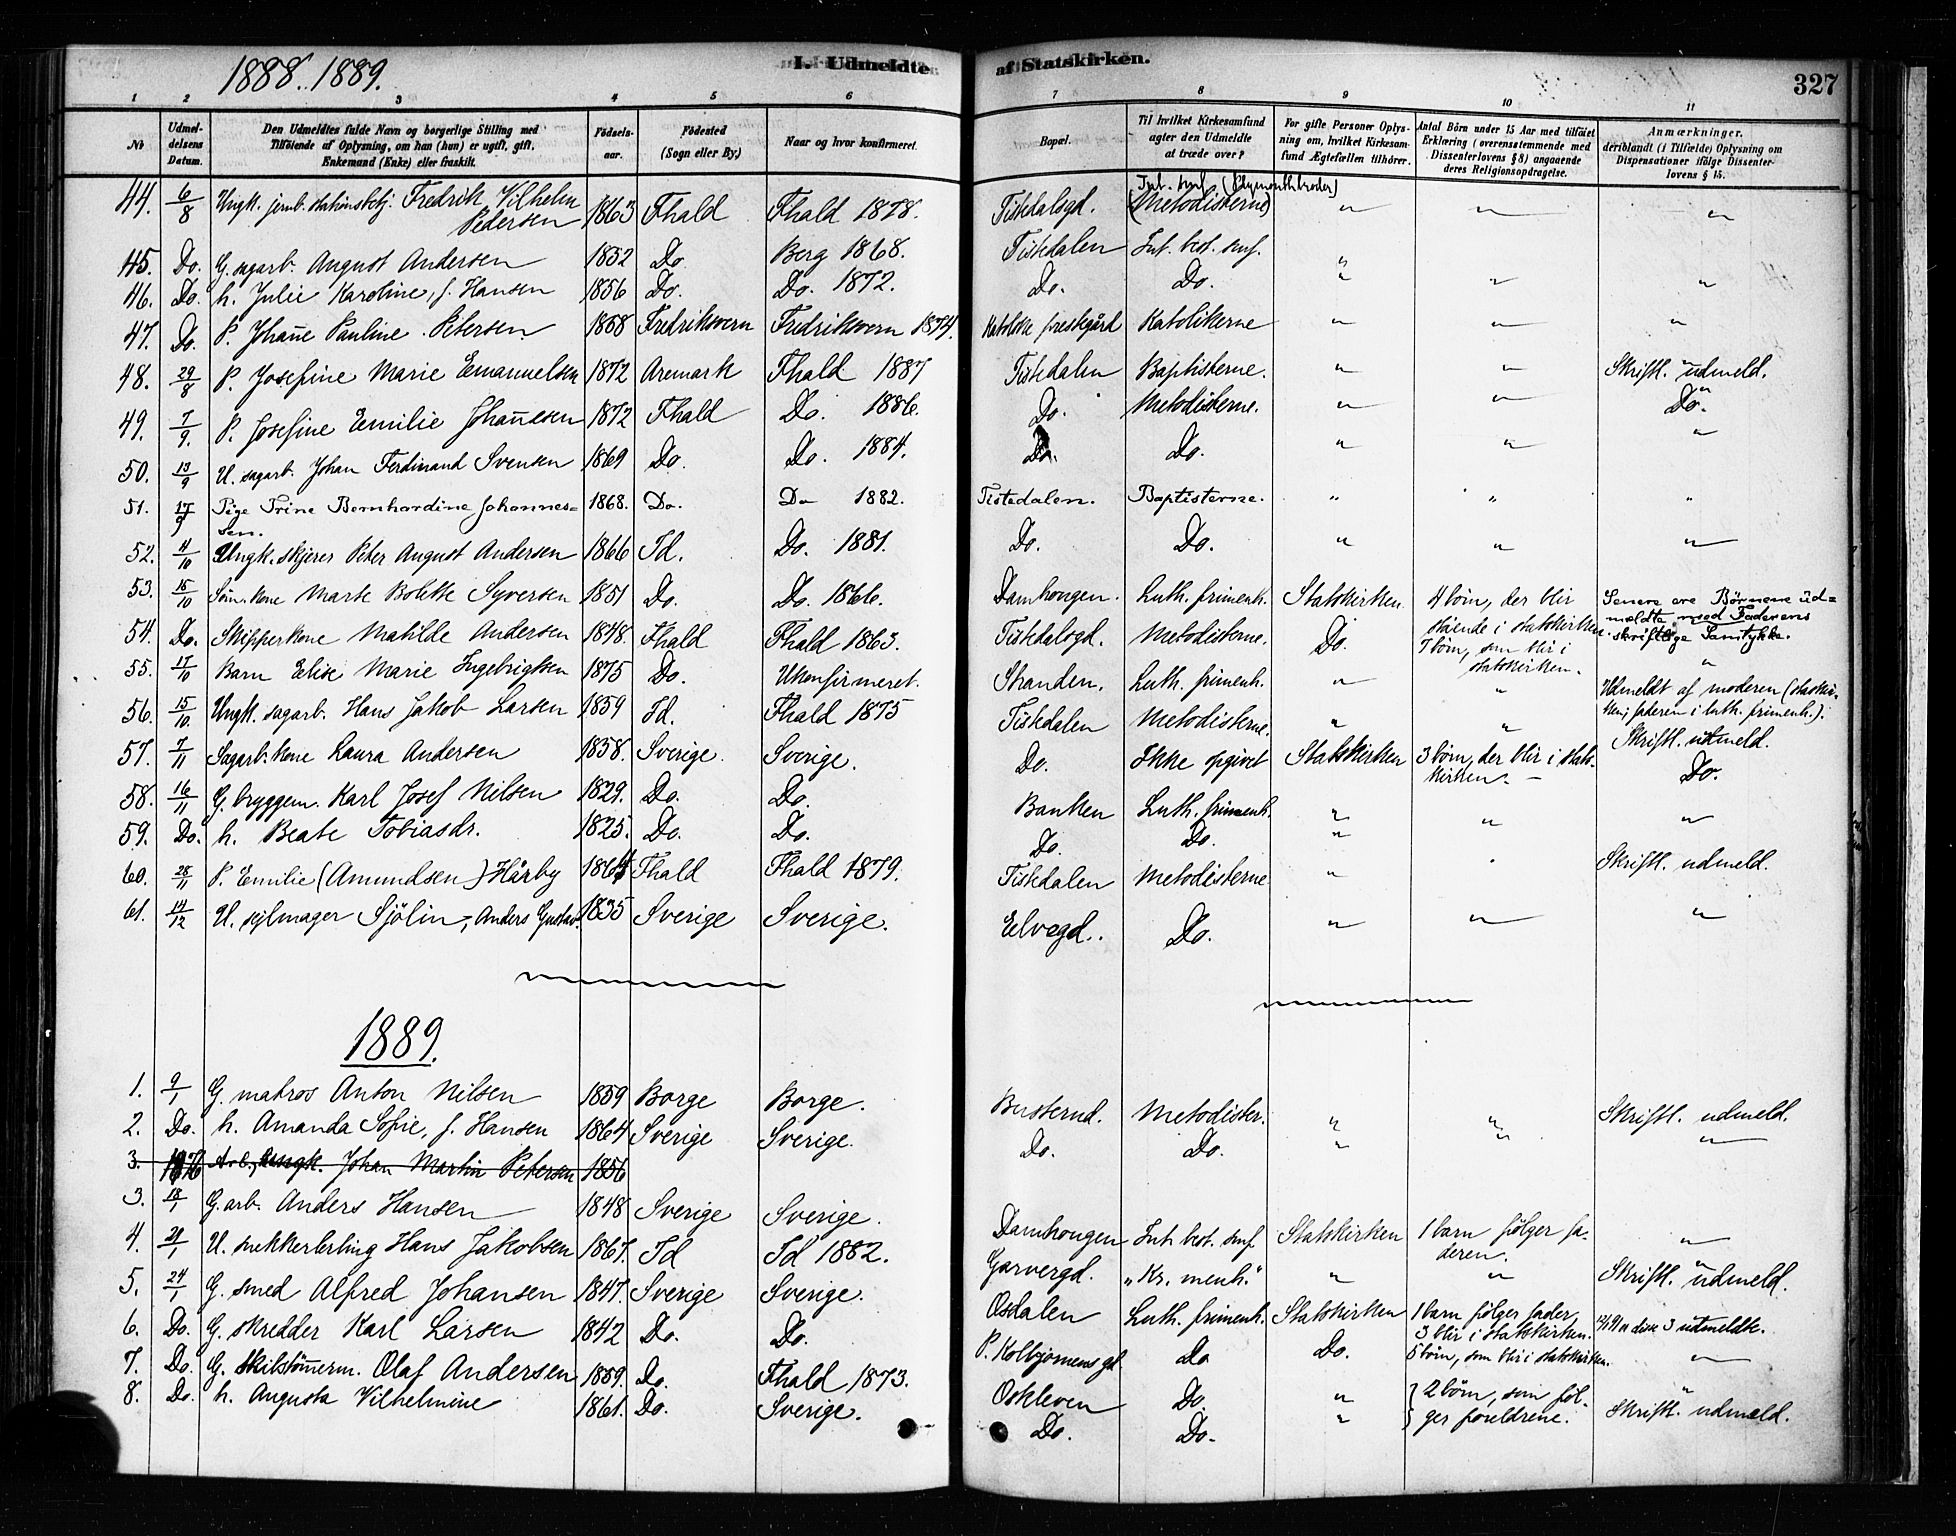 1888. 1889.
I. Udmeldte af Statskirken.
327
1 2 3 4 5 6 7 8 9 10 11
No
Udmeldelsens Datum.
Den Udmeldtes fulde Navn og borgerlige Stilling med Tilføiende af Oplysning, om han (hun) er ugift, gift, Enkemand (Enke) eller fraskilt.
Fødselsaar.
Fødested (Sogn eller By).
Naar og hvor konfirmeret.
Bopæl.
Til hvilket Kirkesamfund agter den Udmeldte at træde over?
For gifte Personer Oplysning om, hvilket Kirkesamfund Ægtefællen tilhører.
Antal Børn under 15 Aar med tilføiet Erklæring (overensstemmende med Dissenterlovens § 8) angaaende deres Religionsopdragelse.
Anmærkninger, deriblandt (i Tilfælde) Oplysning om Dispensationer ifølge Dissenterlovens § 15.
44. 6/8 Ungk. jernb. stationsbetj. Fredrik Vilhelm Pedersen 1863 Fhald Fhald 1878. Tistedalsgd. (Metodisterne) (Plymouthbroder) " " "
45. Do. G. sagarb. August Andersen 1852 Do. Berg 1868. Tistedalen Int. best. smf. "
46. Do. h. Julie Karoline, f. Hansen 1856 Do. Do. 1872. Do. Do. " " "
47. Do. P. Johanne Pauline Petersen 1858 Fredriksvern Fredriksvern 1874. Katolske prestegård Katolikerne " " "
48. 29/8 P. Josefine Marie Emanuelsen 1872 Aremark Fhald 1887 Tistedalen Baptisterne. " " Skriftl. udmeld.
49. 7/9. P. Josefine Emilie Johannesen 1872 Fhald Do. 1886. Do. Metodisterne. " " Do.
50. 13/9 U. sagarb. Johan Ferdinand Svensen 1869 Do. Do. 1884. Do. Do. " " "
51. 17/9 Pige Trine Bernhardine Johannessen. 1868. Do. Do 1882. Tistedalen. Baptisterne. " " "
52. 11/10 Ungk. skjærer Peter August Andersen 1866 Id. Do. 1881. Do. Do. " " "
53. 15/10 Søm. kone Marte Bolette Syversen 1851 Do. Do. 1866. Damhougen. Luth. frimenh. Statskirken 4 børn, der blir stående i statskirken. Senere ere Børnene udmeldte med Faderens skriftlige Samtykke.
54. Do. Skipperkone Matilde Andersen 1848. Fhald Fhald 1863. Tistedalsgd. Metodisterne. Do. 7 børn, som blir i statskirken. "
55. 17/10 Barn Elise Marie Ingebrigtsen 1875 Do. Ukonfirmeret. Skanden. Luth. frimenh. " " Udmeldt af moderen (statskirken; faderen i luth. frimenh.).
56. 15/10. Ungk. sagarb. Hans Jakob Larsen 1859 Id. Fhald 1875 Tistedalen Metodisterne. " " Skriftl. udmeld.
57. 7/11 Sagarb. kone Laura Andersen 1858. Sverige. Sverige. Do. Ikke opgivet Statskirken 3 børn, der blir i statskirken. Do.
58. 16/11 G. bryggem. Karl Josef Nilsen 1829. Do. Do. Banken Luth. frimenh. " " "
59. Do. h. Beate Tobiasdr. 1825. Do. Do. Do. Do. "
60. 28/11 P. Emilie (Amundsen) Hårby 1864 Fhald Fhald 1879. Tistedalen Metodisterne " " Skriftl. udmeld.
61. 14/12 U. sejlmager Sjölin, Anders Gustav. 1835 Sverige Sverige. Elvegd. Do. " " "
1889.
1. 9/1 G. matros Anton Nilsen 1859 Borge Borge. Busterud. Metodister. " " Skriftl. udmeld.
2. Do. h. Amanda Sofie, f. Hansen 1864 Sverige Sverige. Do. Do. " " "
3. Arb., ungk. Johan Martin Petersen 1856
3. 18/1 G. arb. Anders Hansen 1848 Sverige Sverige. Damhougen Int. best. smf. Statskirken 1 barn følger faderen. "
4. 21/1 U. snekkerlerling Hans Jakobsen 1867. Id Id 1882. Garvergd. "Kr. menh." " " Skriftl. udmeld.
5. 24/1 G. smed Alfred Johansen 1847. Sverige Sverige. Osdalen Luth. frimenh. Statskirken 1 barn følger fader, 3 blir i statskirken. disse 3 udmeldte.
6. Do. G. skredder Karl Larsen 1842 Do. Do. P. Kolbjørnens gd Do. Do. 5 børn, som blir i statskirken. "
7. Do. G. skibstømerm. Olaf Andersen 1859. Do. Fhald 1873. Oskleven Do. " } 2 børn, som følger foreldrene. "
8. Do. h. Augusta Vilhelmine 1861. Do. Sverige. Do. Do. " Skriftl. udmeld.